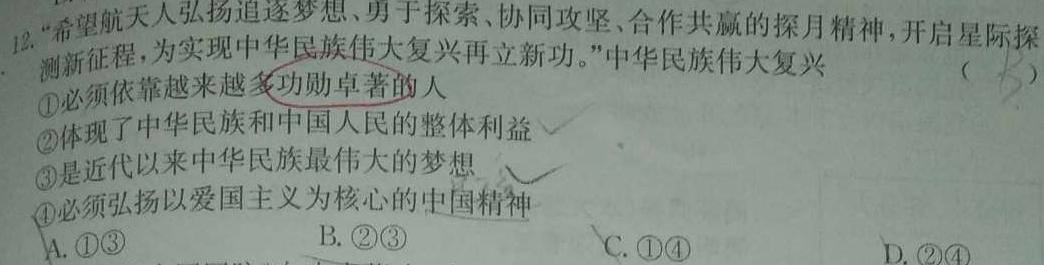 12. “希望航天人弘扬追逐梦想、勇于探索、协同攻坚、合作共赢的探月精神，开启星际探
测新征程，为实现中华民族伟大复兴再立新功。”中华民族伟大复兴 （ B ）
①必须依靠越来越多功勋卓著的人
②体现了中华民族和中国人民的整体利益
③是近代以来中华民族最伟大的梦想
④必须弘扬以爱国主义为核心的中国精神
A. ①③ B. ②③ C. ①④ D. ②④